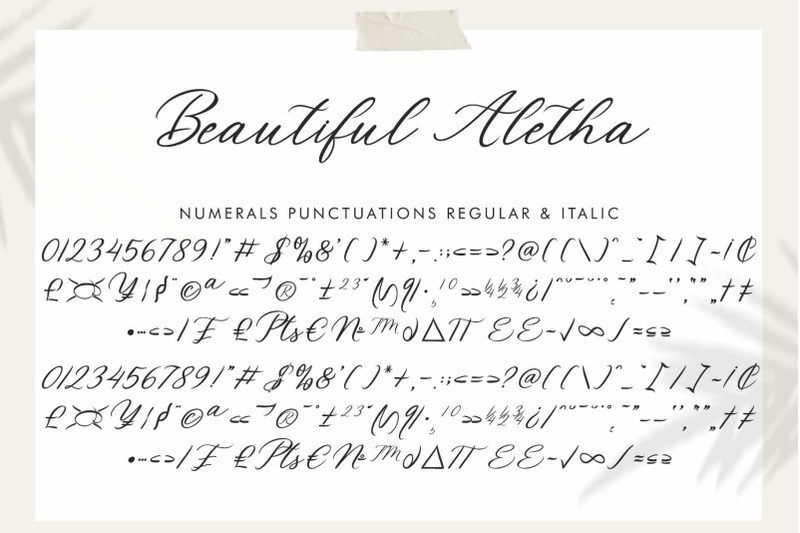 Beautiful Aletha
NUMERALS PUNCTUATIONS REGULAR & ITALIC
0123456789!"# $%&'()*+,-.:;<=>?@((\)^_`[/]~¡₵
£¤¥¦§¨©ª«¬®¯°±²³´µ¶·¸¹⁰»¼½¾¿/
•…<>/₣₤₧€№™∂∆π
0123456789!"# $%&'()*+,-.:;<=>?@((\)^_`[/]~¡₵
£¤¥¦§¨©ª«¬®¯°±²³´µ¶·¸¹⁰»¼½¾¿/
•…<>/₣₤₧€№™∂∆π